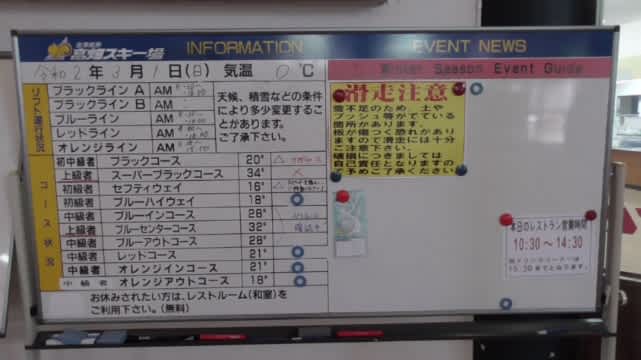 高畑スキー場 INFORMATION
EVENT NEWS
令和2年3月1日(日) 気温 0℃
Winter Season Event Guide
リフト運行状況
ブラックライン A AM
ブラックライン B AM
ブルーライン AM
レッドライン AM
オレンジライン AM
天候、積雪などの条件
により多少変更するこ
とがあります。
ご了承下さい。
コース状況
初中級者 ブラックコース 20° △
上級者 スーパーブラックコース 34° ×
初級者 セフティウェイ 16° △
初級者 ブルーハイウェイ 18°
中級者 ブルーインコース 26°
上級者 ブルーセンターコース 32°
中級者 ブルーアウトコース 28°
中級者 レッドコース 21°
中級者 オレンジインコース 21°
中級者 オレンジアウトコース 18°
お休みされたい方は、レストルーム(和室)を
ご利用下さい。(無料)
滑走注意
雪不足のため 土や
ブッシュ等がでている
箇所があります。
板が傷つく恐れがあり
ますので滑走には十分
ご注意下さい。
破損につきましては
自己責任となりますの
で予めご了承ください
本日のレストラン営業時間
10:30～14:30